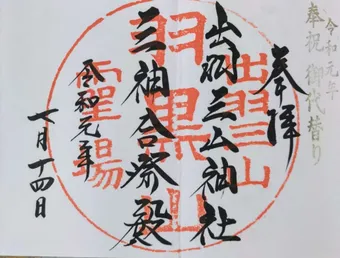 令和元年
奉祝 御代替り
奉拝
出羽三山神社
三神合祭殿
令和元年
七月十四日
出羽三山
羽黒山
靈場